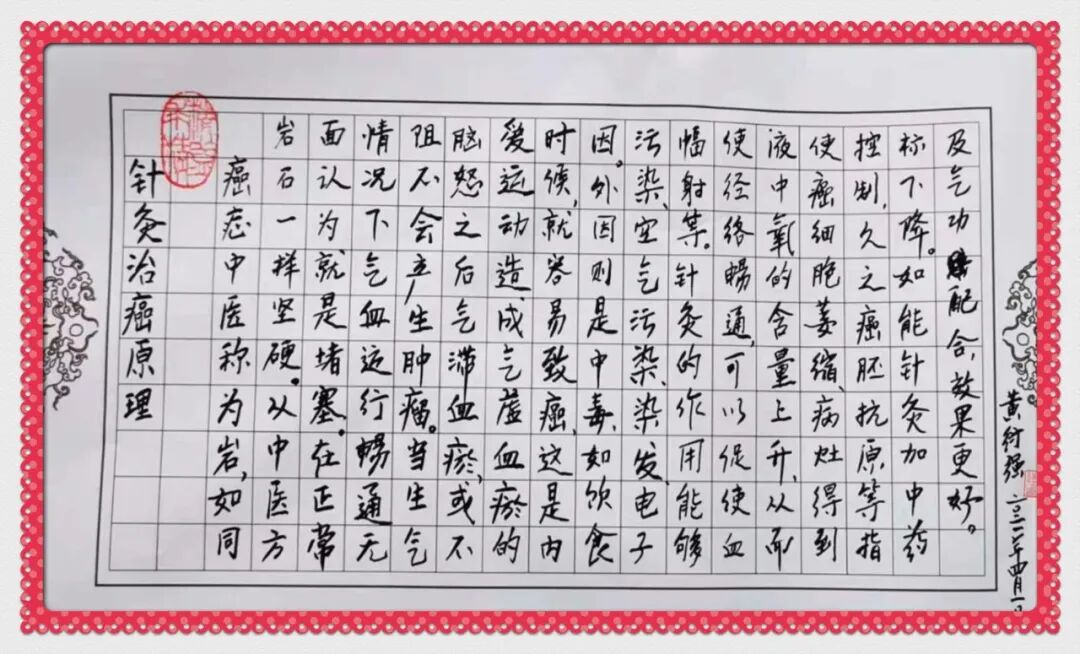 针灸治癌原理
癌症中医称为岩,如同
岩石一样坚硬。从中医方
面认为就是堵塞。在正常
情况下气血运行暢通无
阻不会产生肿瘤。当生气
脑怒之后气滞血瘀,或不
爱运动造成气虚血瘀的
时候,就容易致癌,这是内
因。外因则是中毒,如饮食
污染、空气污染、染发、电子
幅射等。针灸的作用能够
使经络暢通,可以促使血
液中氧的含量上升,从而
使癌细胞萎缩,病灶得到
控制,久之癌胚抗原等指
标下降。如能针灸加中药
及气功配合,效果更好。
黄 强 年四月一日